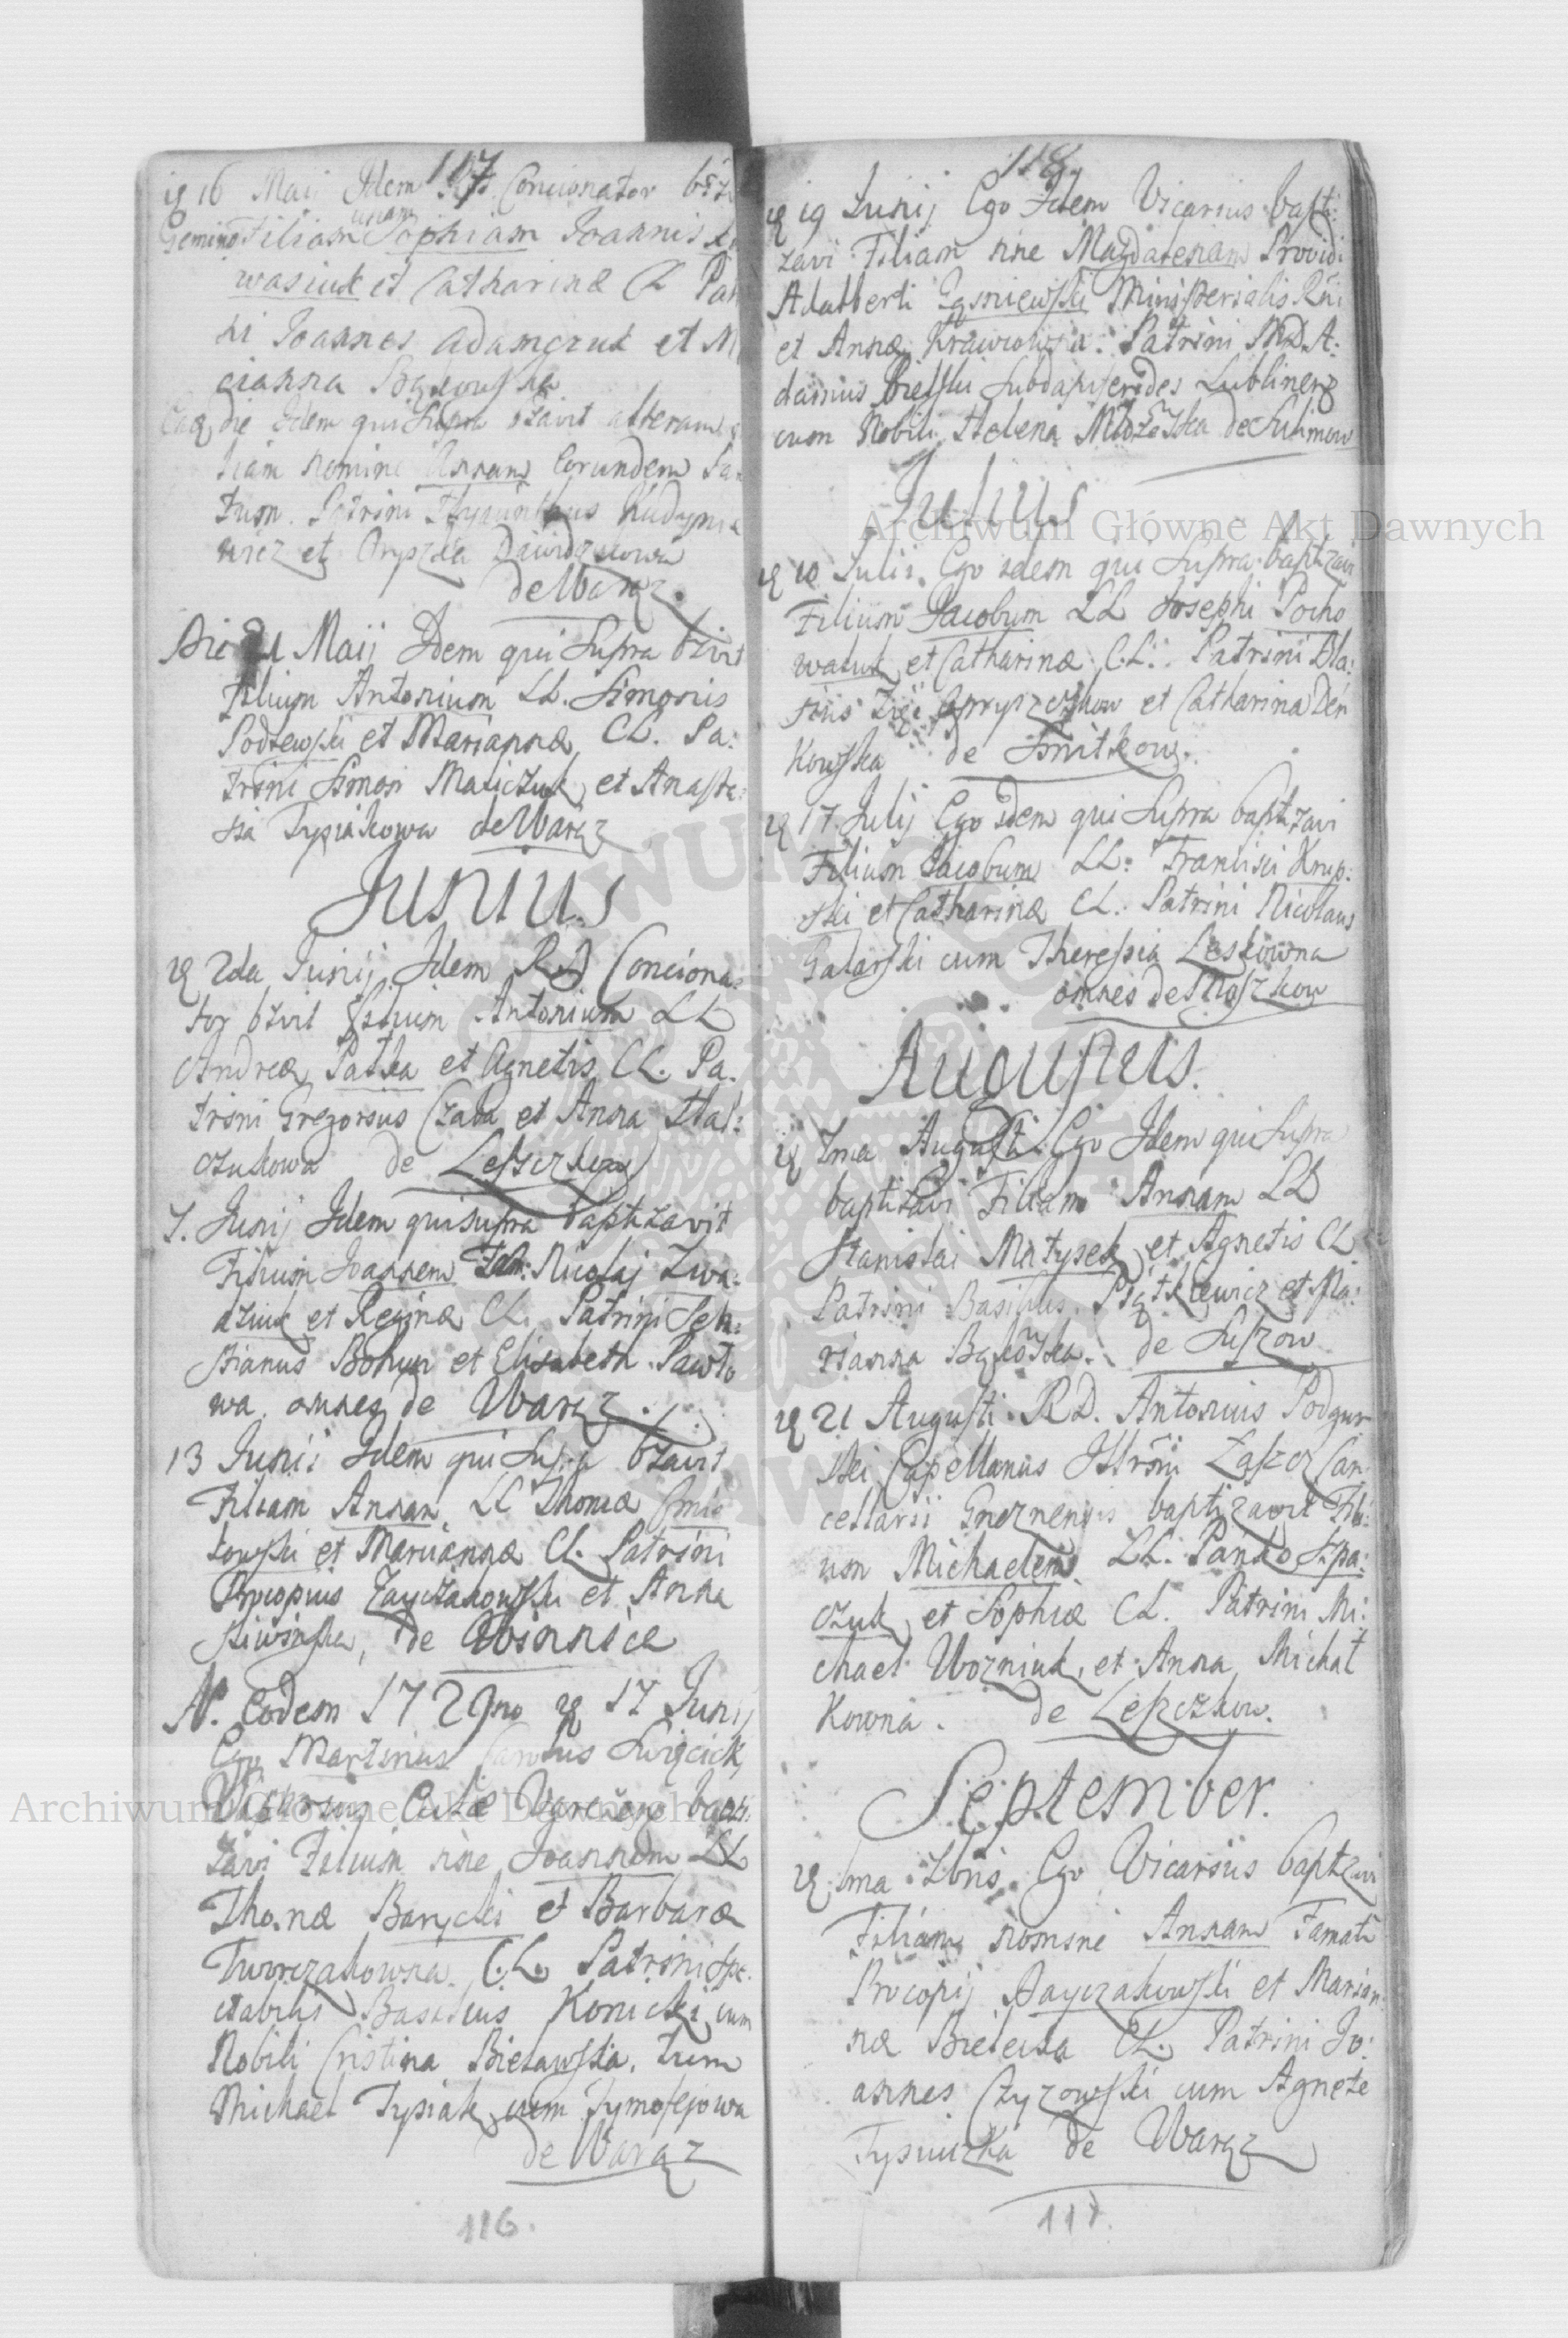 117
16 Maij Idem RD Concionator
Geminos Filiam unam Sophiam Joannis
wasiuk et Catharinæ CL
ni Joannes Adamczuk et
cianna
Eadem die Idem qui Supra bzavit alteram
liam nomine Annam Eorundem
Patrini Hyacinthus
wicz et Oryszka Dawidzukowa
de Waręz.
Die 21 Maij Idem qui Supra bzvit
Filium Antonium LL. Simonis
Podlewski et Mariannæ CL. Pa:
trini Simon Maliczuk et Anasta:
sia Tysiakowa de Waręz
Junius
2da Junij Idem RD Conciona:
tor bzvit Filium Antonium LL
Andreæ Patka et Agnetis CL. Pa.
trini Gregorius Czada et Anna Hal:
czukowa de
7. Junij Idem qui supra baptizavit
Filium Joannem Fam: Nicolaj Iwa:
dziuk et Reginæ CL. Patrini Seba:
stianus Bohun et Elisabeth Pawło
wa omnes de Waręz.
13 Junii Idem qui Supra bzavit
Filiam Annam LL Thomæ
kowski et Mariannæ CL. Patrini
Procopius Zayczakowski et Anna
de Winnice
A. Eodem 1729no 17 Junij
Ego Martinus Carolus Swięcick
Vicarius baptі:
zavi Filium nne Joannem LL
Thomæ Barycki et Barbaræ
Tworczakowna CL. Patrini Spe:
ctabilis Basilius Konicki cum
Nobili Cristina Bielawska. Item
Michael Tysiak cum Tymosejowa
de Waraz
116.
118.
19 Junij Ego Idem Vicarius bapti:
zavi Filiam nne Magdalenam Providi
Adalberti Gąsniewski Ministerialis Rni
et Annæ Krawcowna. Patrini MD A:
damus Bielski Subdapiferides Lublinens
cum Nobili Helena de Sulimow
Julius
10 Julii Ego idem qui Supra baptizavi
Filium Jacobum LL Josephi Pocho
waluk et Catharinæ CL. Patrini Bla:
sius et Catharina
kowska de Smitkow.
17 Julij Ego idem qui Supra baptizavi
Filium Jacobum LL: Francisci Krup:
ski et Catharinæ CL. Patrini Nicolaus
Galarski cum Theresia Leskowna
omnes de Moszkow
Augustus.
1ma Augusti Ego Idem qui Supra
baptizavi Filiam Annam LL
Stanislai Matysek et Agnetis CL
Patrini Basilius Piątkiewicz et Ma:
rianna de Suszow
21 Augusti RD. Antonius Podgur
ski Capellanus Illrmi Can
cellarii Gneznensis baptizavit Fili:
um Michaelem LL. Panko Szpa:
czuk et Sophiæ CL. Patrini Mi:
chael Wozniuk et Anna Michał
kowna. de Leszczkow.
September.
1ma 7bris Ego Vicarius baptizavi
Filiam nomine Annam Famati
Procopij Zayczakowski et Marian
næ Bielecka CL. Patrini Jo:
annes Czyzowski cum Agnete
Tysiuczka de Waręz
117.
Archiwum Główne Akt Dawnych
Archiwum Główne Akt Dawnych